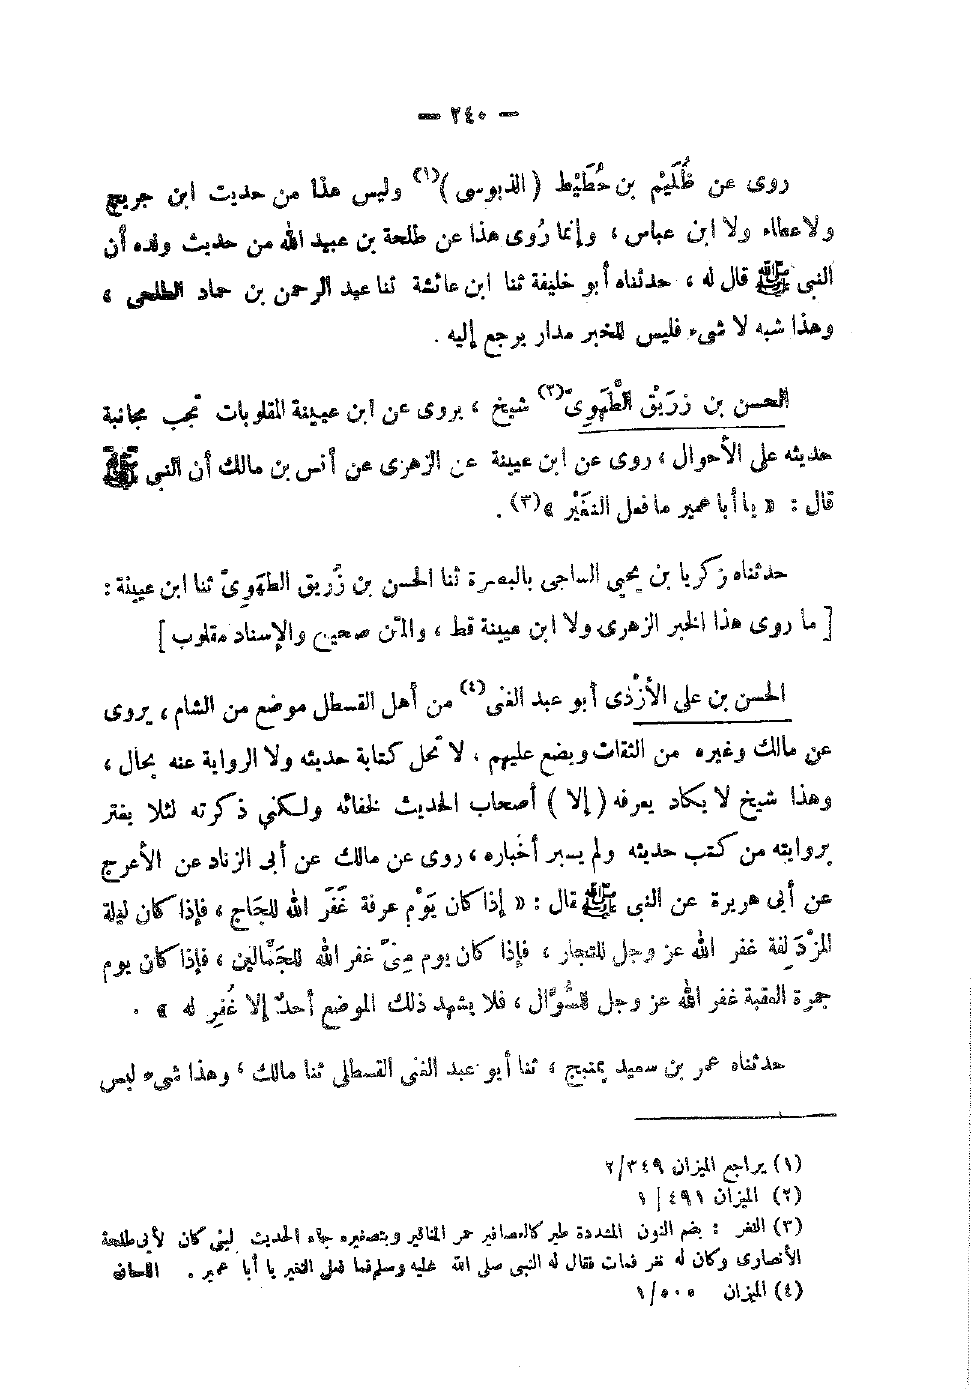 — ٢٤٠ —
روى عن ظُلَيْم بن حُطَيْط ( الدبوسى )(١) وليس هذا من حديث ابن جريج
ولا عطاء ولا ابن عباس ، وإنما رُوى هذا عن طلحة بن عبيد الله من حديث ولده أن
النبى ﷺ قال له ، حدثناه أبو خليفة ثنا ابن عائشة ثنا عبد الرحمن بن حماد الطلحى ،
وهذا شبه لا شىء فليس للخبر مدار يرجع إليه .
الحسن بن زريق الطُّهَوِىّ(٢) شيخ ، يروى عن ابن عيينة المقلوبات تجب مجانبة
حديثه على الأحوال ، روى عن ابن عيينة عن الزهرى عن أنس بن مالك أن النبى ﷺ
قال : « يا أبا عمير ما فعل النغَيْر »(٣) .
حدثناه زكريا بن يحيى الساجى بالبصرة ثنا الحسن بن زُريق الطهَوِىّ ثنا ابن عيينة :
[ ما روى هذا الخبر الزهرى ولا ابن عيينة قط ، والمتن صحيح والإسناد مقلوب ]
الحسن بن على الأزْدى أبو عبد الغنى(٤) من أهل القسطل موضع من الشام ، يروى
عن مالك وغيره من الثقات ويضع عليهم ، لا تحل كتابة حديثه ولا الرواية عنه بحال ،
وهذا شيخ لا يكاد يعرفه ( إلا ) أصحاب الحديث لخفائه ولكني ذكرته لئلا يغتر
بروايته من كتب حديثه ولم يسبر أخباره ، روى عن مالك عن أبى الزناد عن الأعرج
عن أبى هريرة عن النبى ﷺ قال : « إذا كان يَوْم عرفة غَفَر الله للحَاج ، فإذا كان ليلة
المزْدَلِفة غفر الله عز وجل للتجار ، فإذا كان يوم مِنىً غفر الله للجَمَّالين ، فإذا كان يوم
جمرة العقبة غفر الله عز وجل للسُّوَّال ، فلا يشهد ذلك الموضع أحدٌ إلا غُفِر له » .
حدثناه عمر بن سعيد بمنبج ، ثنا أبو عبد الغنى القسطلى ثنا مالك ، وهذا شىء ليس
(١) يراجع الميزان ٢/٣٤٩
(٢) الميزان ١/٤٩١
(٣) النغر : بضم النون المشددة طير كالعصافير حمر المناقير وبتصغيره جاء الحديث لبنى كان لأبى طلحة
الأنصارى وكان له نغر فمات فقال له النبى صلى الله عليه وسلم فما فعل النغير يا أبا عمير . اللسان
(٤) الميزان ١/٥٠٥